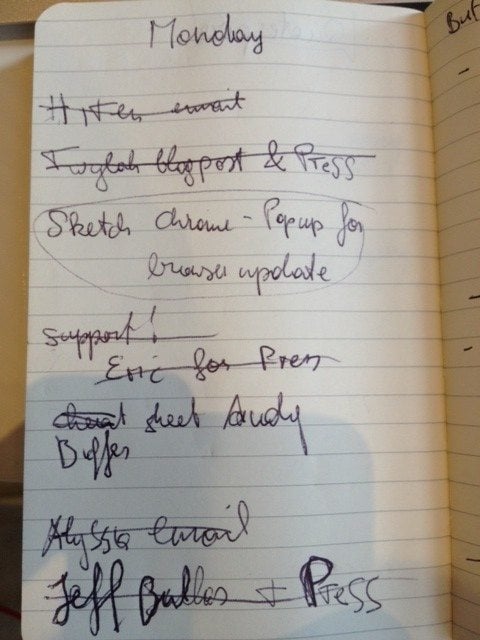 Monday
Hiten email
Twylah blogpost & Press
Sketch chrome - Popup for
browser update
support!
Eric for Press
cheat sheet Andy
Buffer
Alyssa Email
Jeff Bullas + Press
Buf